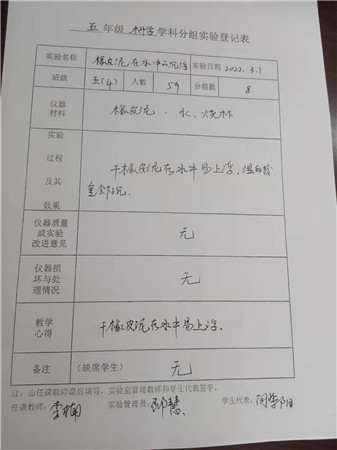 五 年级 科学 学科分组实验登记表
实验名称 橡皮泥在水中的沉浮 实验日期 2022.3.1
班级 五(4) 人数 59 分组数 8
仪器材料 橡皮泥、水、烧杯
实验过程及其效果 干橡皮泥在水中易上浮,湿的
仪器质量或实验改进意见 无
仪器损坏与处理情况 无
教学心得 干橡皮泥在水中易上浮。
备注 (缺席学生) 无
注:由任课教师课后填写,实验室管理教师和学生代表签字。
任课教师: 李楠 实验管理员: 慧 学生代表: